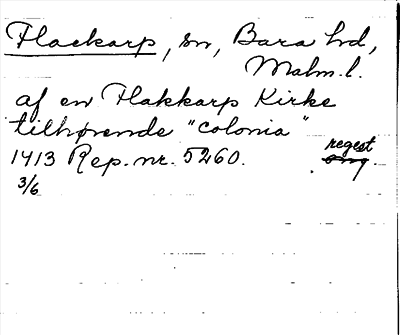 Flackarp, sn, Bara hd,
Malm. l.
af en Flakkarps Kirke
tilhørende "colonia"
1413 Rep. nr. 5260. regest
3/6